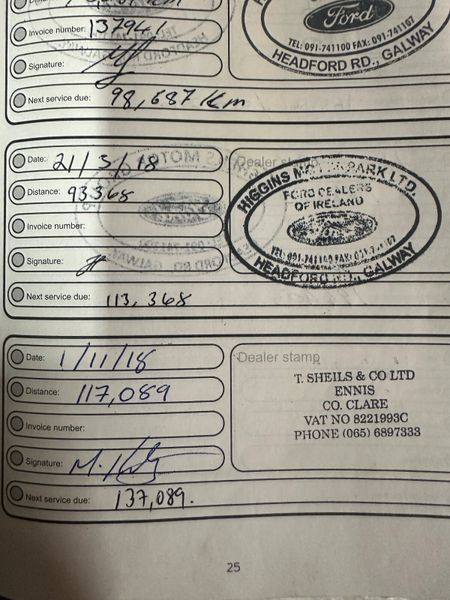 Date:
Ford
TEL: 091-741100 FAX: 091-741107
HEADFORD RD., GALWAY
Invoice number: 137941
Signature:
Next service due: 98,687 Km
Date: 21/3/18
Dealer stamp
Distance: 93368
HIGGINS MOTOR PARK LTD.
FORD DEALERS
OF IRELAND
Invoice number:
TEL: 091-741100 FAX: 091-741107
Signature:
HEADFORD RD., GALWAY
Next service due: 113,368
Date: 1/11/18
Dealer stamp
Distance: 117,089
T. SHEILS & CO LTD
ENNIS
CO. CLARE
VAT NO 8221993C
PHONE (065) 6897333
Invoice number:
Signature:
Next service due: 137,089.
25